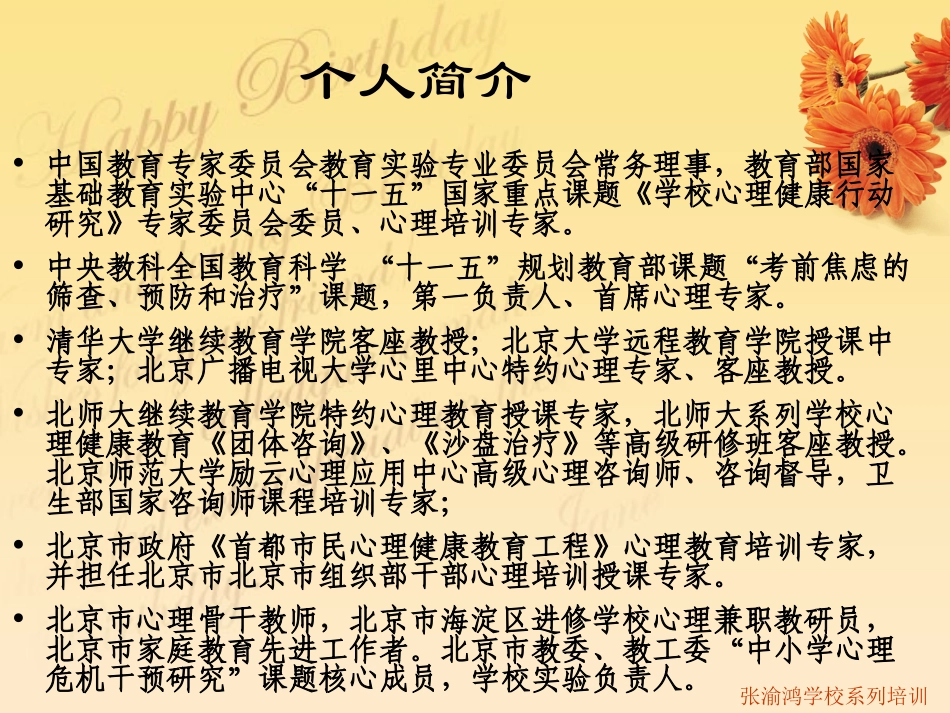 个人简介
• 中国教育专家委员会教育实验专业委员会常务理事，教育部国家
基础教育实验中心“十一五”国家重点课题《学校心理健康行动
研究》专家委员会委员、心理培训专家。
• 中央教科全国教育科学 “十一五”规划教育部课题“考前焦虑的
筛查、预防和治疗”课题，第一负责人、首席心理专家。
• 清华大学继续教育学院客座教授；北京大学远程教育学院授课中
专家；北京广播电视大学心里中心特约心理专家、客座教授。
• 北师大继续教育学院特约心理教育授课专家，北师大系列学校心
理健康教育《团体咨询》、《沙盘治疗》等高级研修班客座教授。
北京师范大学励云心理应用中心高级心理咨询师、咨询督导，卫
生部国家咨询师课程培训专家；
• 北京市政府《首都市民心理健康教育工程》心理教育培训专家，
并担任北京市北京市组织部干部心理培训授课专家。
• 北京市心理骨干教师，北京市海淀区进修学校心理兼职教研员，
北京市家庭教育先进工作者。北京市教委、教工委“中小学心理
危机干预研究”课题核心成员，学校实验负责人。
张渝鸿学校系列培训
Happy Birthday